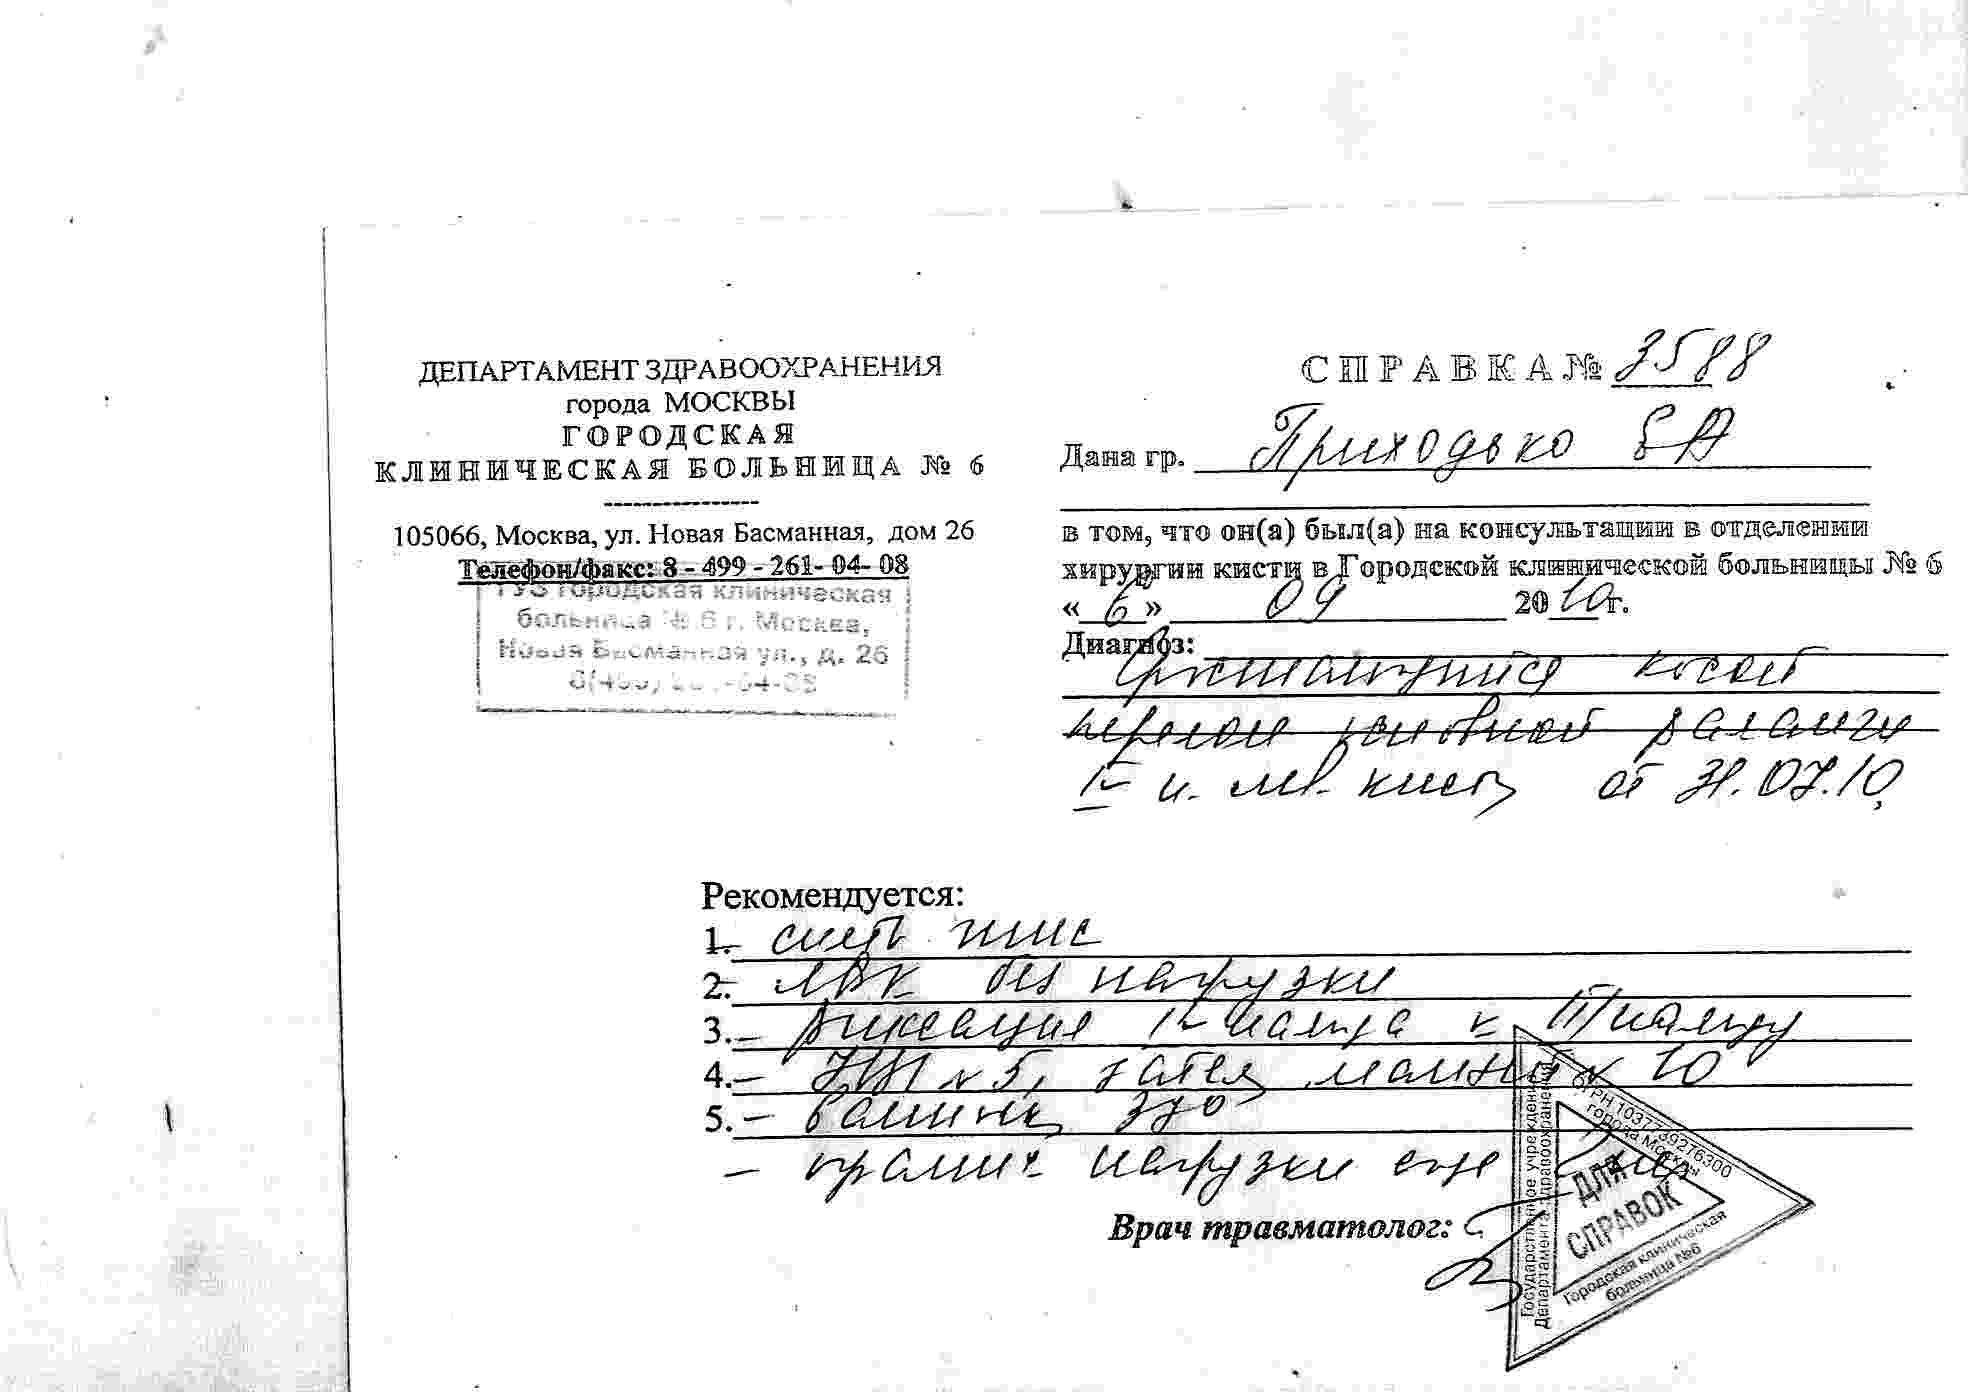 ДЕПАРТАМЕНТ ЗДРАВООХРАНЕНИЯ
города МОСКВЫ
ГОРОДСКАЯ
КЛИНИЧЕСКАЯ БОЛЬНИЦА № 6
105066, Москва, ул. Новая Басманная, дом 26
Телефон/факс: 8 - 499 - 261- 04- 08
ГУЗ Городская клиническая
больница № 6 г. Москва,
Новая Басманная ул., д. 26
8(499) 261-04-08
СПРАВКА № 3588
Дана гр. Приходько
в том, что он(а) был(а) на консультации в отделении
хирургии кисти в Городской клинической больницы № 6
«6» 09 2010г.
Диагноз:
Срастающийся косой
перелом основной фаланги
п. лев. кисти от 31.07.10,
Рекомендуется:
1. снять гипс
2. ЛФК без нагрузки
3. – фиксация пальца к III пальцу
4. – N 5, затем N 10
5. – ванны 37°
– нагрузки еще
Врач травматолог:
Государственное учреждение
Департамента здравоохранения
ОГРН 1037739276300
города Москвы
ДЛЯ
СПРАВОК
Городская клиническая
больница №6